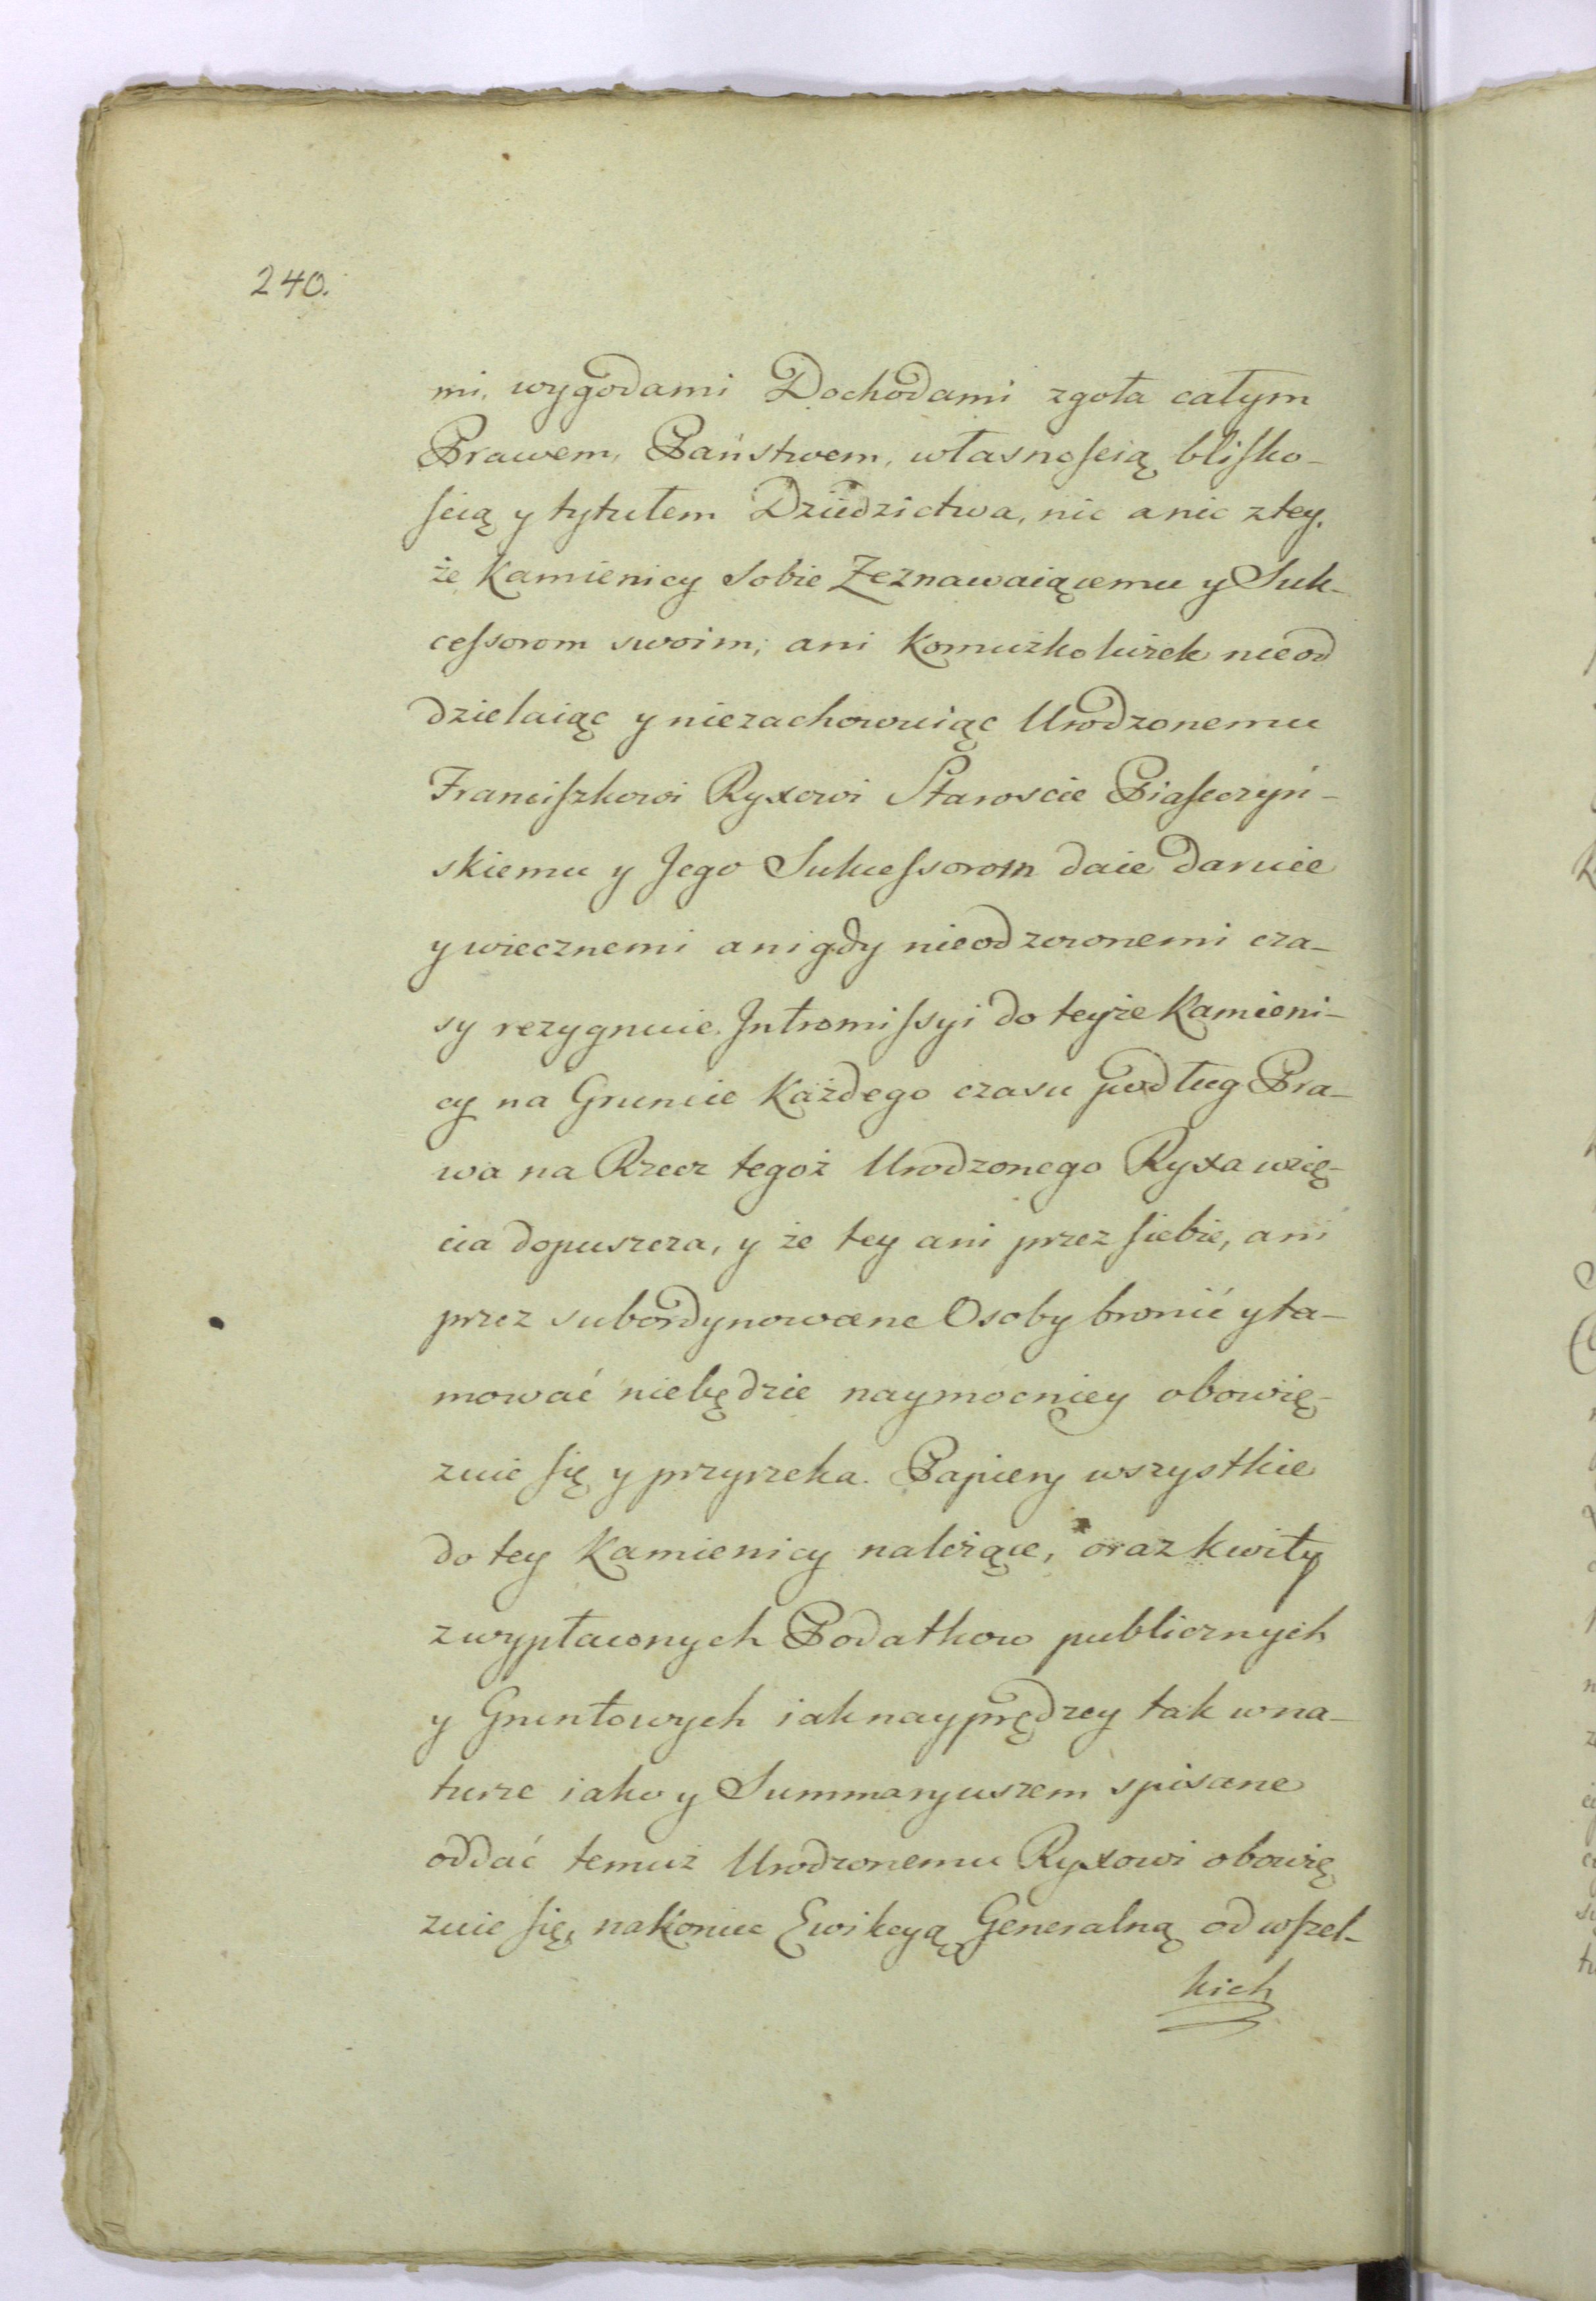 240.
mi, wygodami Dochodami zgoła całym
Prawem, Państwem, własnoſcią bliſko-
ſcią y tytułem Dziedzictwa, nic a nic z tey,
że Kamienicy sobie Zeznawaiącemu y Suk-
ceſsorom swoim, ani komużkolwiek nieod
dzielaiąc y niezachowuiąc Urodzonemu
Franciſzkowi Ryxowi Staroscie Piaſeczyń-
skiemu y Jego Sukceſsorom daie daruie
y wiecznemi a nigdy nieodzwonemi cza-
sy rezygnuie. Intromiſsyi do teyże Kamieni-
cy na Gruncie każdego czasu podług Pra-
wa na Rzecz tegoż Urodzonego Ryxa wzię-
cia dopuszcza, y że tey ani przez ſiebie, ani
przez subordynowane Osoby bronić y ta-
mować niebędzie naymocniey obowię-
zuie ſię y przyrzeka. Papiery wszystkie
do tey Kamienicy należące, oraz kwity
z wypłaconych Podatkow publicznych
y Gruntowych iak nayprędzey tak w na-
turze iako y Summaryuszem spisane
oddać temuż Urodzonemu Ryxowi obowię
zuie ſię, nakoniec Ewikcyą Generalną od wſzel-
kich